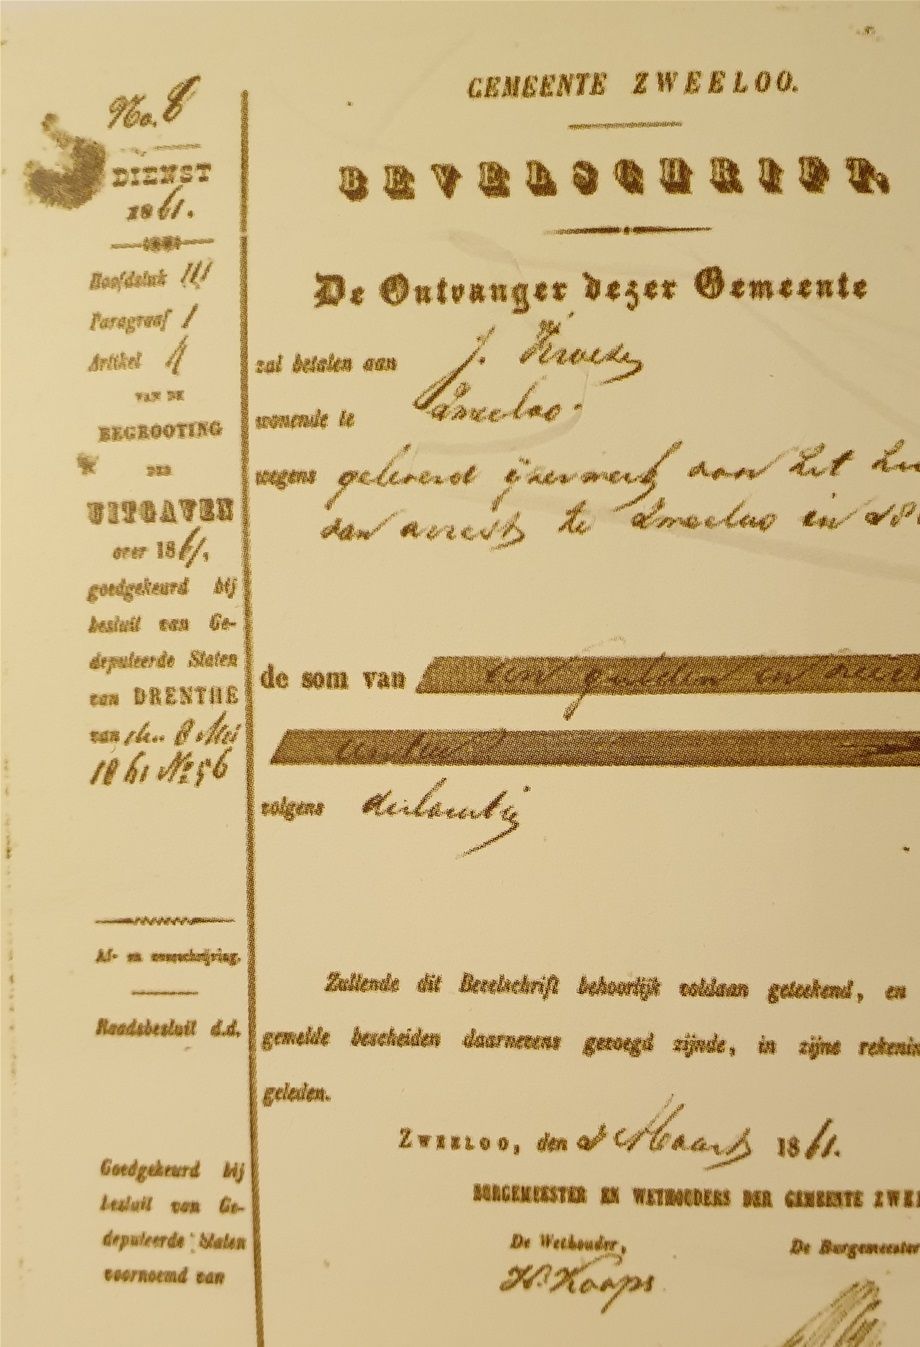 No. 8
DIENST
1861.
Hoofdstuk III
Paragraaf 1
Artikel
VAN DE
BEGROOTING
DER
UITGAVEN
over 1861,
goedgekeurd bij
besluit van Ge-
deputeerde Staten
van DRENTHE
van den 8 Mei
1861 No 56
Af- en overschrijving.
Raadsbesluit d.d.
Goedgekeurd bij
besluit van Ge-
deputeerde Staten
voornoemd van
GEMEENTE ZWEELOO.
BEVELSCHRIFT.
De Ontvanger dezer Gemeente
zal betalen aan J. Kroeze
wonende te Zweeloo
wegens geleverd ijzerwerk aan het
van arrest te Zweeloo in 18
de som van een gulden en
centen
volgens declaratie
Zullende dit Bevelschrift behoorlijk voldaan geteekend, en
gemelde bescheiden daarnevens gevoegd zijnde, in zijne rekenin
geleden.
ZWEELOO, den 2 Maart 1861.
BURGEMEESTER EN WETHOUDERS DER GEMEENTE ZWE
De Wethouder, De Burgemeester
Koops